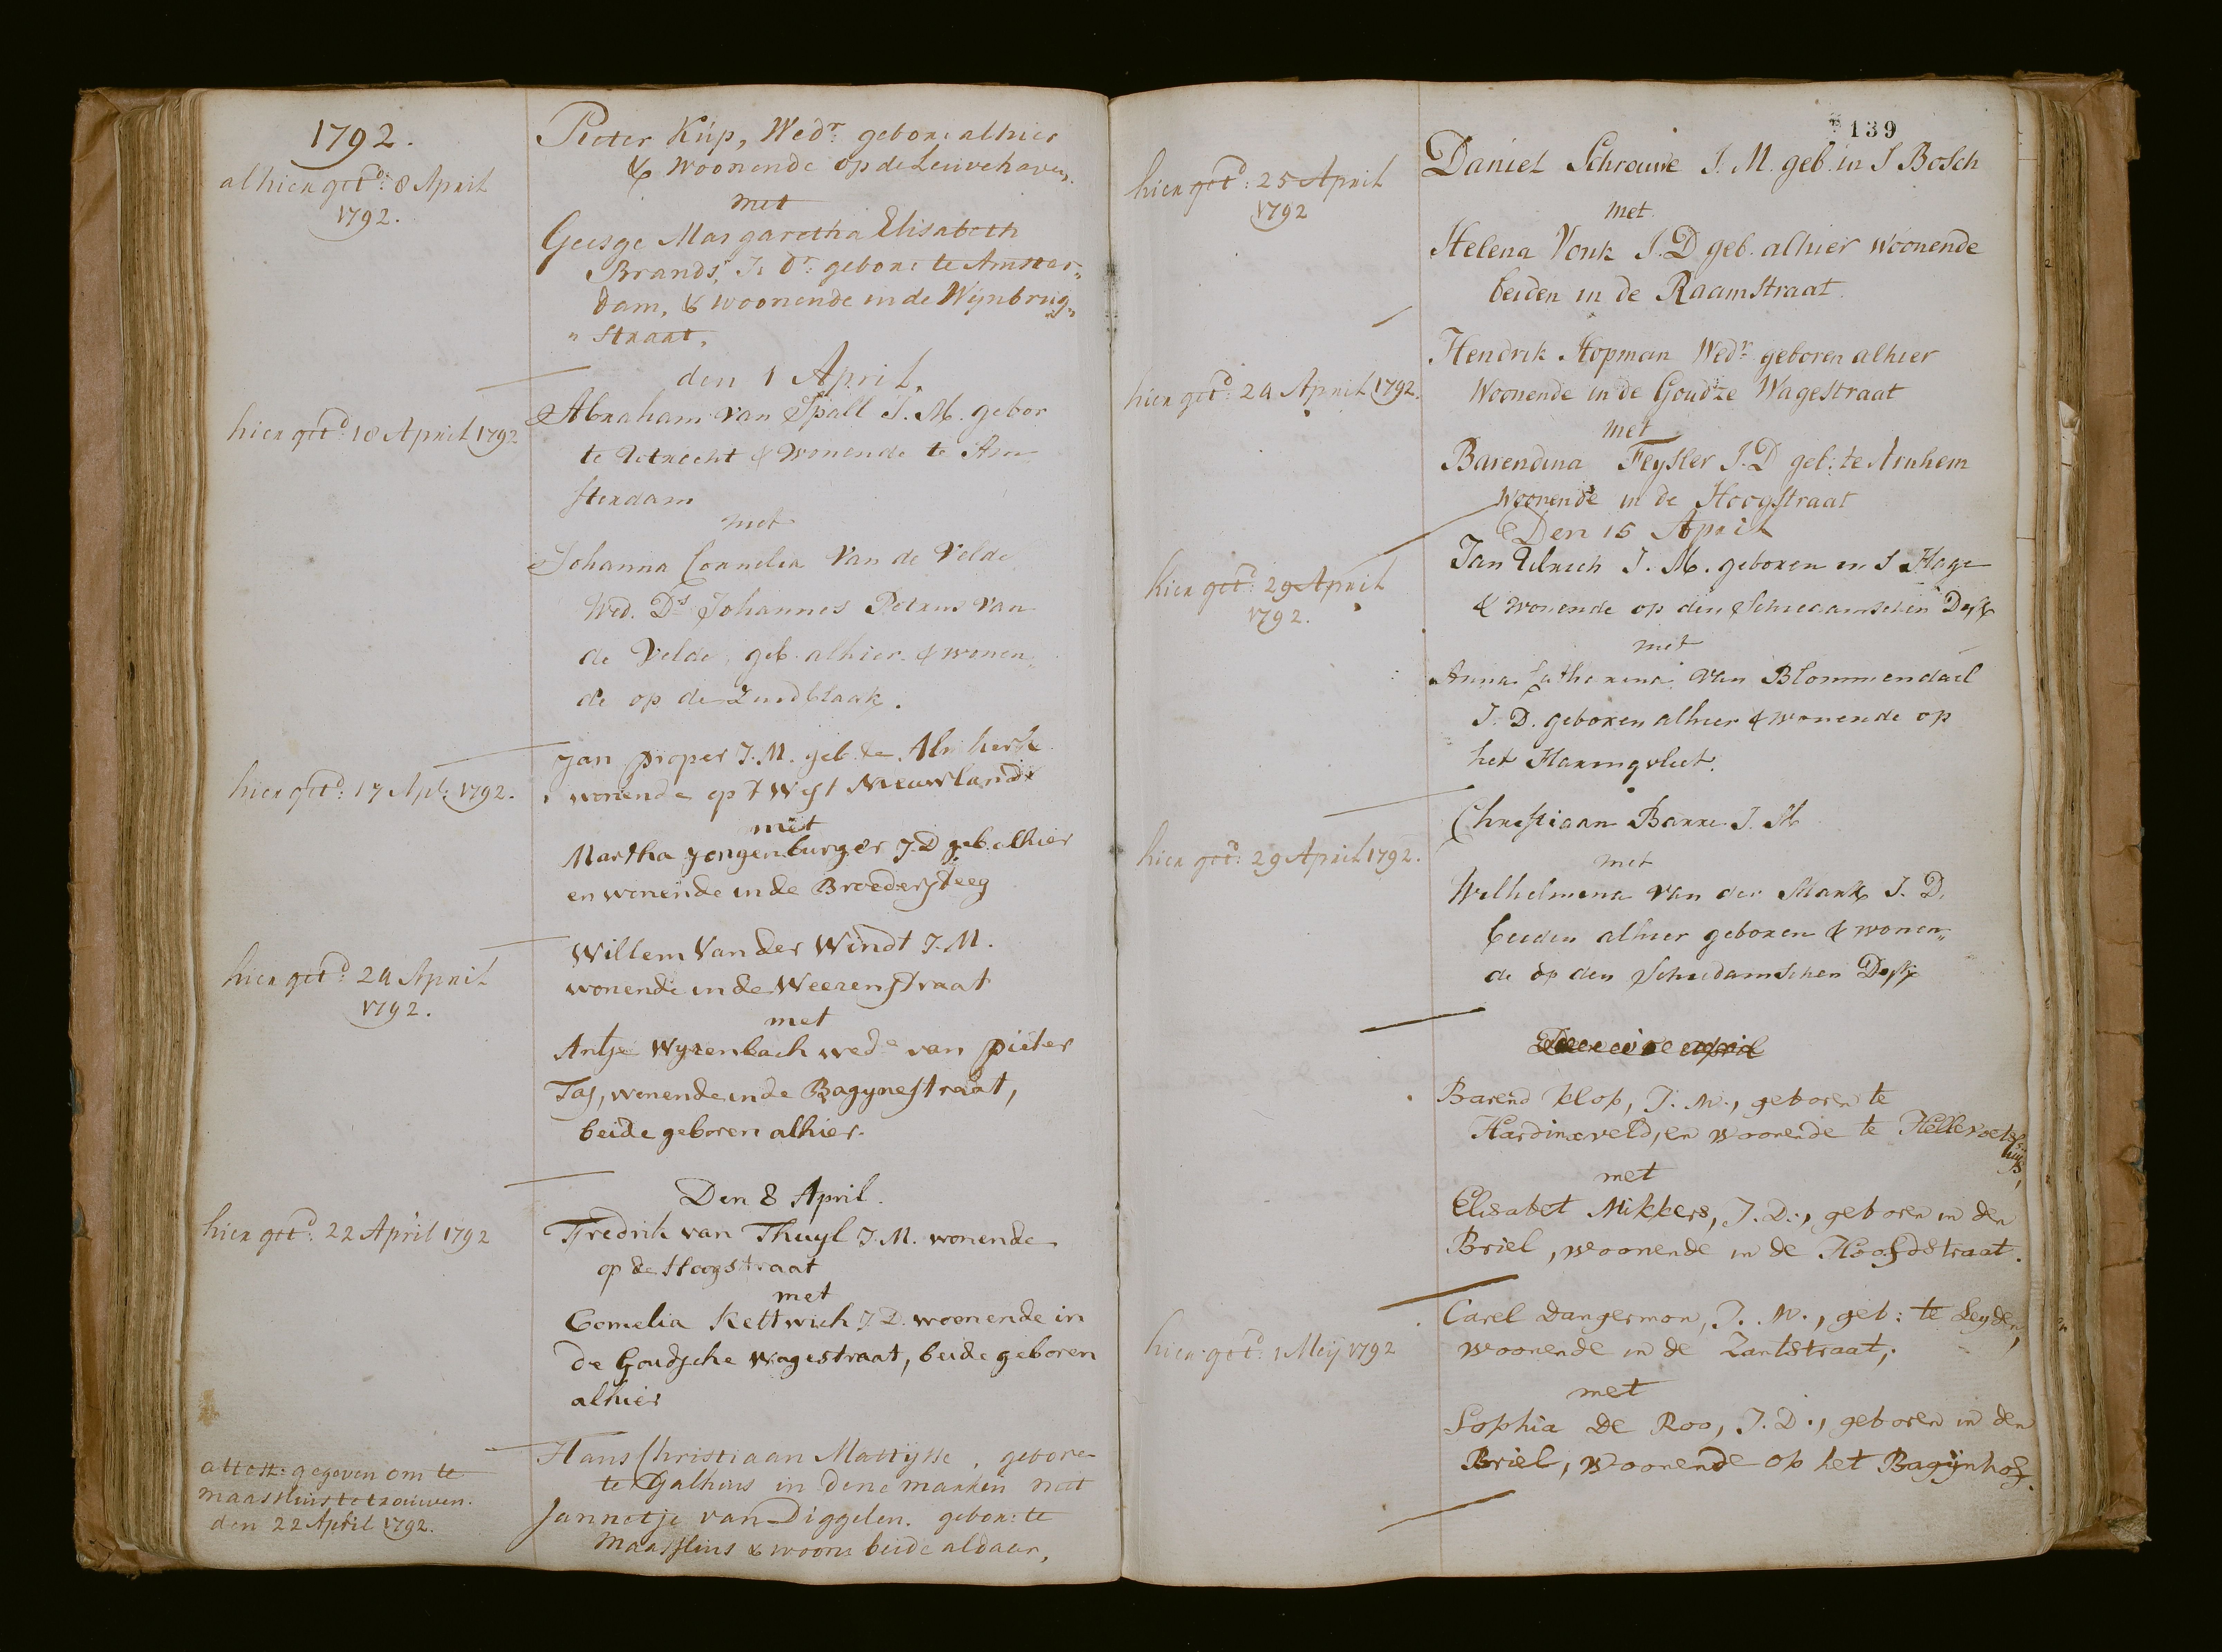 1792.
alhier getd: 8 April
1792.
Pieter Kúp, Wedr: gebor: alhier
& Woonende op de Leuvehaven.
met
Geesge Margaretha Elisabeth
Brands, J: Dr: gebor: te Amster„
dam, & woonende in de Wijnbrug„
„ Straat,
den 1 April,
hier getd: 18 April 1792
Abraham van Spall J. M. gebor
te Utrecht & Wonende te Am
sterdam
met
Johanna Cornelia Van de Velde
Wed. Ds Johannes Petrus Van
de Velde, geb. alhier & wonen„
de op de Zuidblaak.
hier getd: 17 Apl: 1792.
Jan proper J. M. geb. te Almkerk
wonende op t West Nieuwland
met
Martha Jongenburger J. D geb. alhier
en wonende in de Broedersteeg
hier getd: 24 April
1792.
Willem Van der Windt J. M.
wonende in de Weezenstraat
met
Antje Wyzenbach wede van pieter
Tas, wonende in de Bagynestraat,
beide geboren alhier.
Den 8 April.
hier getd: 22 April 1792
Fredrik van Thuyl J. M. wonende
op de Hoogstraat
met
Cornelia Kettwich J. D. woonende in
de Goudsche Wagestraat, beide geboren
alhier
attest: gegeven om te
Maassluis te trouwen.
den 22 April 1792.
Hans Christiaan Mattysse, gebore
te Galhuus in dene marken met
Jannetje van Diggelen. gebor: te
Maassluis & woone beide aldaar,
139
hier getd: 25 April
1792
Daniel Schrouwe J. M. geb. in S Bosch
met
Helena Vonk J. D geb. alhier woonende
beiden in de Raamstraat.
hier getd: 24 April 1792.
Hendrik Hopman Wedr geboren alhier
Woonende in de Goudze Wagestraat
met
Barendina Feysler J. D geb: te Arnhem
Woonende in de Hoogstraat
Den 15 April
hier getd: 29 April
1792.
Jan Ulrich J. M. geboren in S Hage
& wonende op den Schiedamschen Dyk
met
Anna Catharina van Blommendael
J. D. geboren alhier & wonende op
het Haringvliet.
hier getd: 29 April 1792.
Christiaan Barre J. M
met
Wilhelmina van der Mark J. D.
beiden alhier geboren & wonen„
de op den Schiedamschen Dyk
Barend Klop, J. M., geboren te
Hardinxveld, en woonende te Hellevoets
huis,
met
Elisabet Mikkers, J. D., geboren in den
Briel, woonende in de Hoofdstraat.
hier getd: 1 Meij 1792
Carel Dangermon, J. M., geb: te Leyden,
woonende in de Zantstraat,
met
Sophia De Roo, J. D., geboren in den
Briel, woonende op het Bagijnhof.